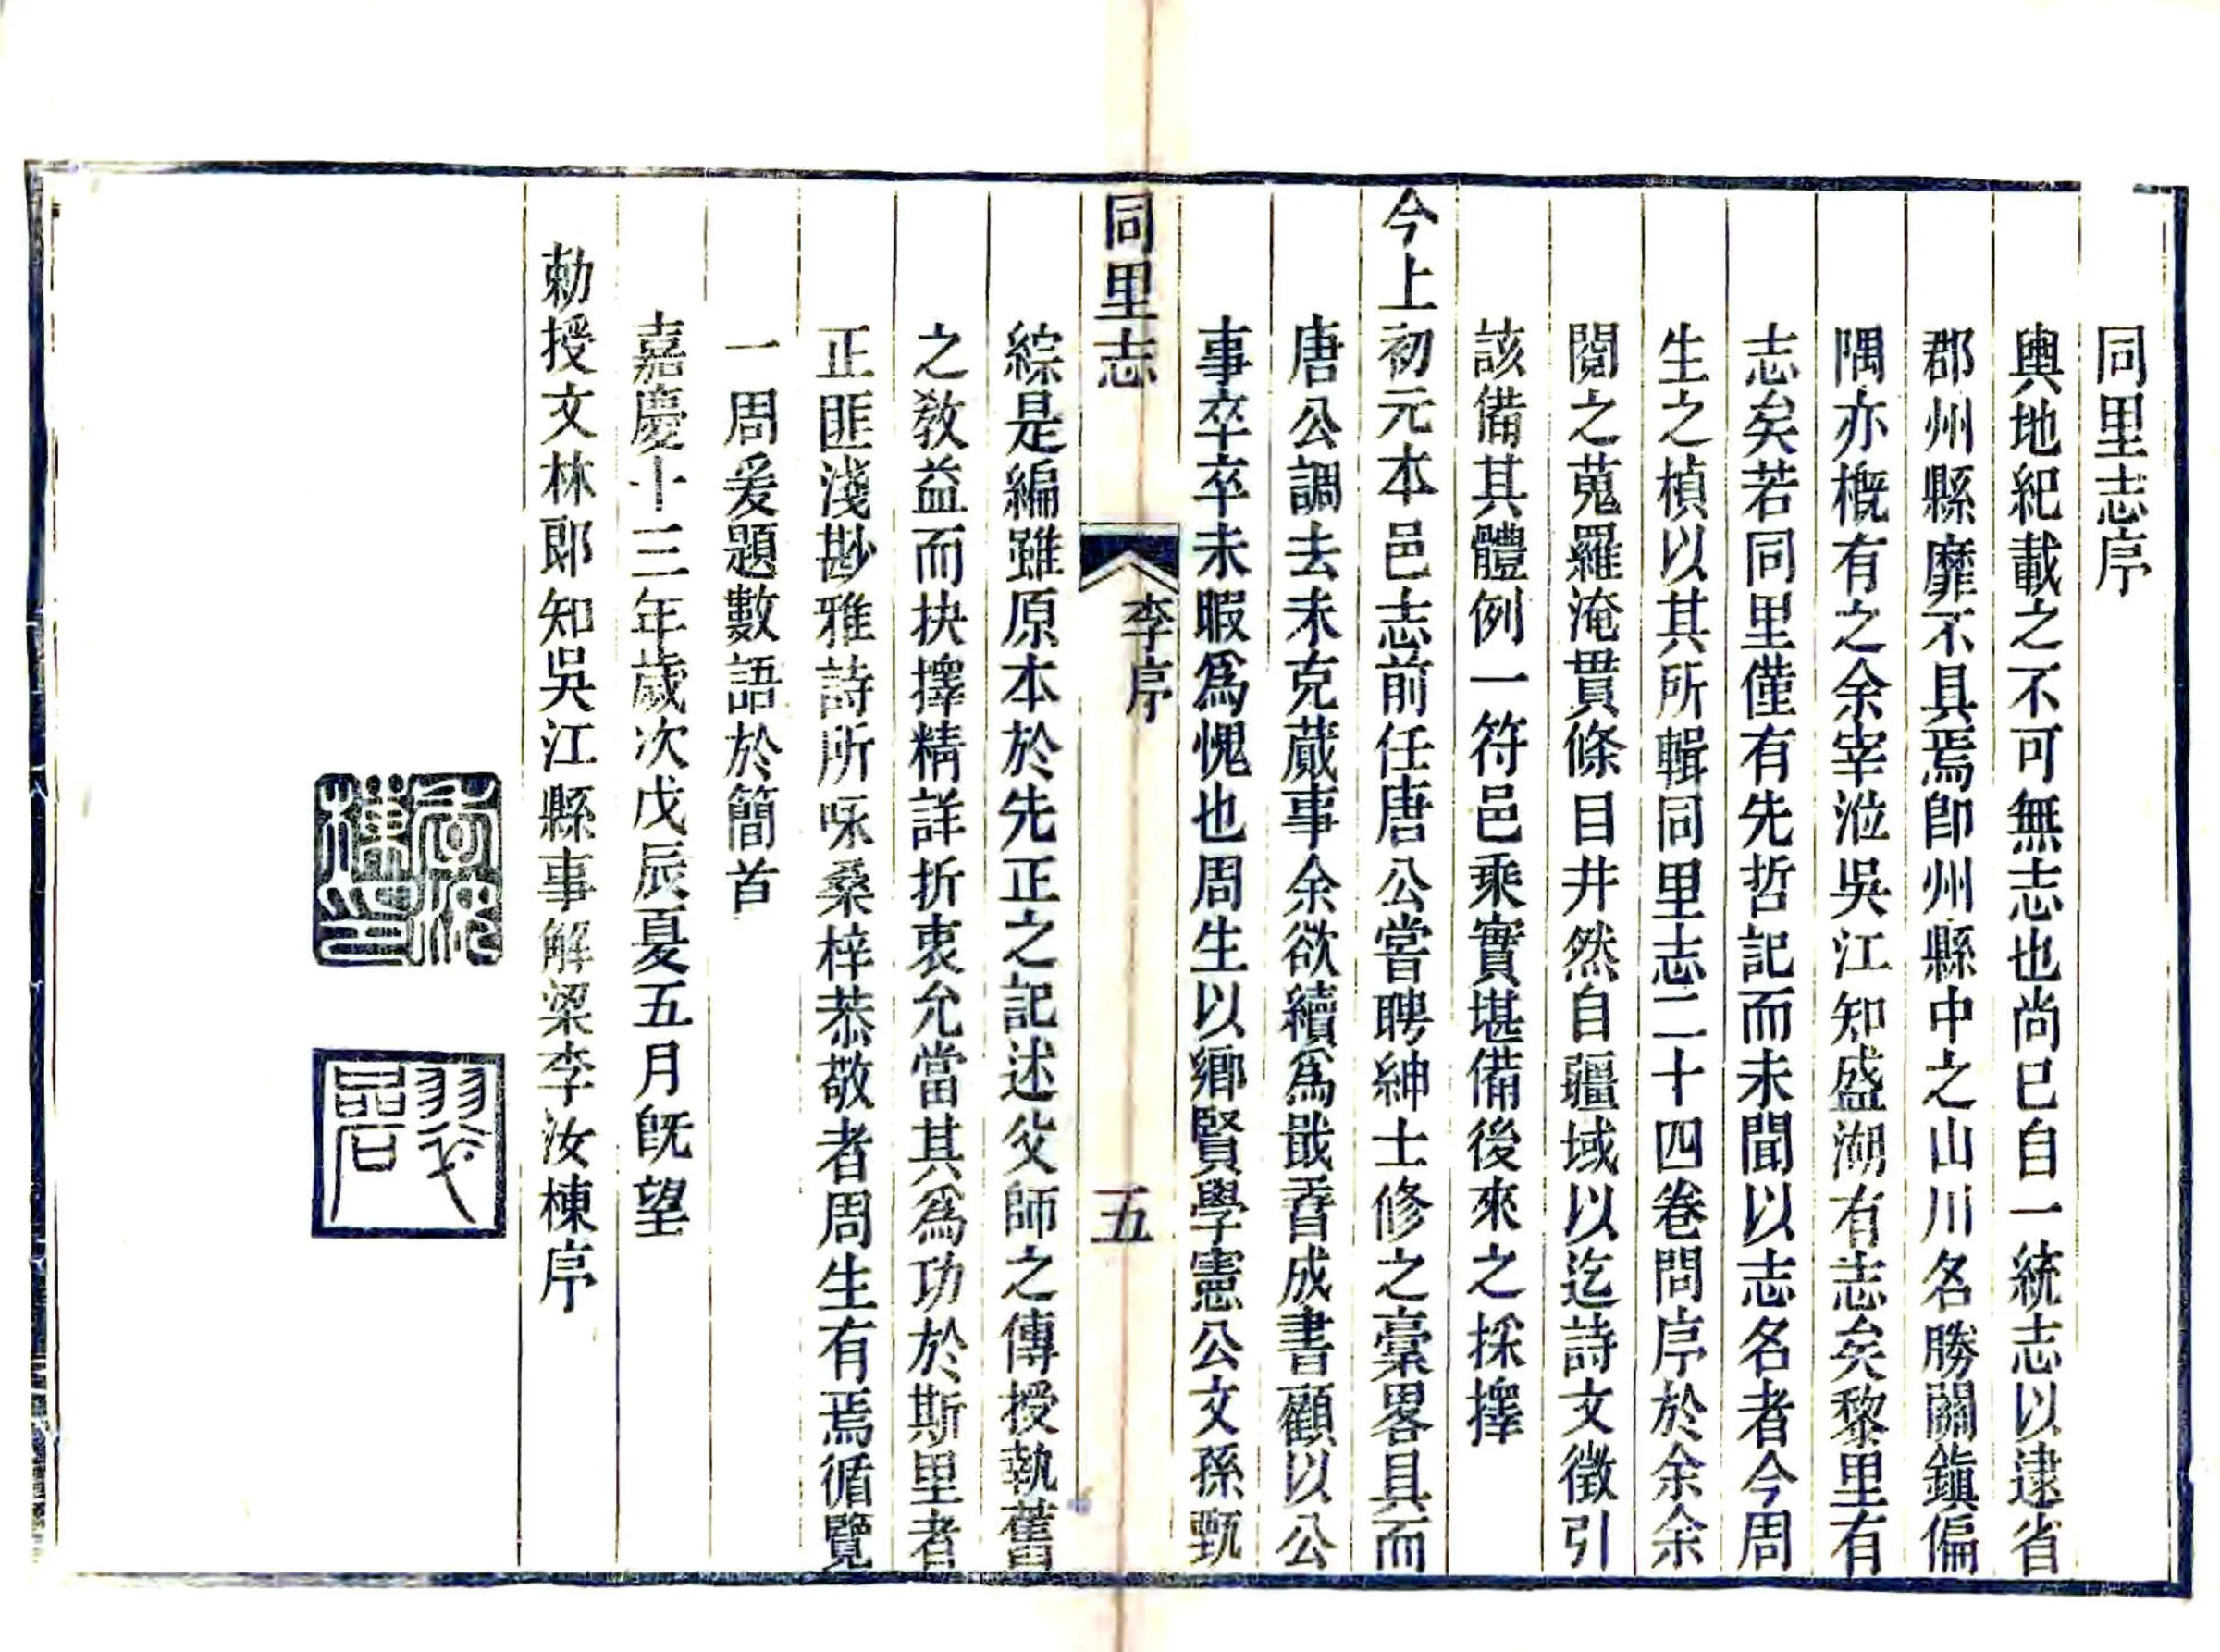 同里志序
輿地紀載之不可無志也尚已自一統志以逮省
郡州縣靡不具焉卽州縣中之山川名勝關鎭偏
隅亦槪有之余宰涖吳江知盛湖有志矣黎里有
志矣若同里僅有先哲記而未聞以志名者今周
生之楨以其所輯同里志二十四卷問序於余余
閱之蒐羅淹貫條目井然自疆域以迄詩文徵引
該備其體例一符邑乘實堪備後來之採擇
今上初元本邑志前任唐公嘗聘紳士修之稾畧具而
唐公調去未克蕆事余欲續爲戢香成書顧以公
事卒卒未暇爲愧也周生以鄉賢學憲公文孫甄
同里志
李序
五
綜是編雖原本於先正之記述父師之傳授執舊
之敎益而抉擇精詳折衷允當其爲功於斯里者
正匪淺尠雅詩所咏桑梓恭敬者周生有焉循覽
一周爰題數語於簡首
嘉慶十三年歲次戊辰夏五月旣望
勅授文林郎知吳江縣事解梁李汝棟序
李汝棟印